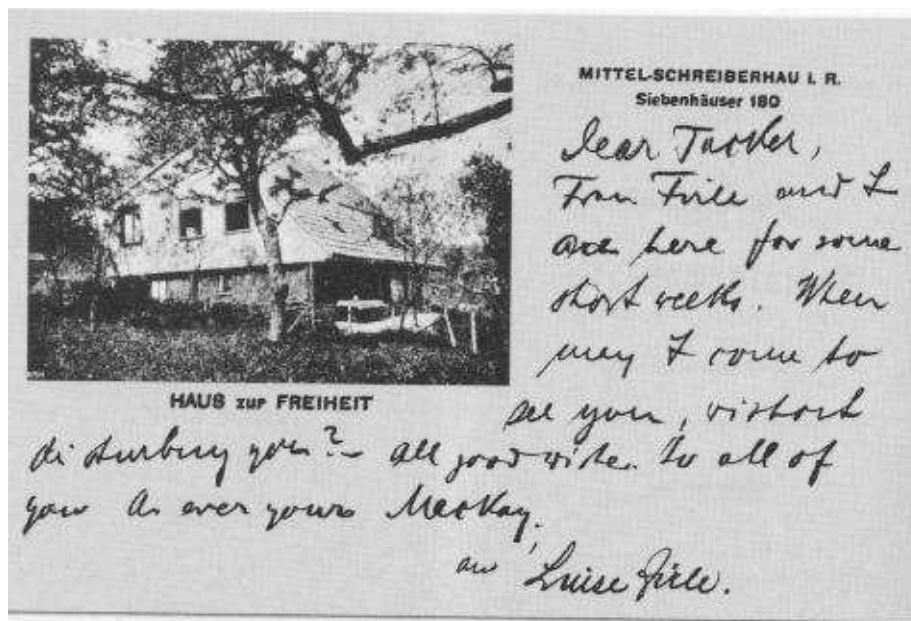 MITTEL-SCHREIBERHAU I. R.
Siebenhäuser 180
Dear Tucker,
Frau Firle and I
are here for some
short weeks. When
may I come to
HAUS zur FREIHEIT
see you, without
disturbing you? – All good wishes to all of
you As ever yours Mackay.
Luise Firle.